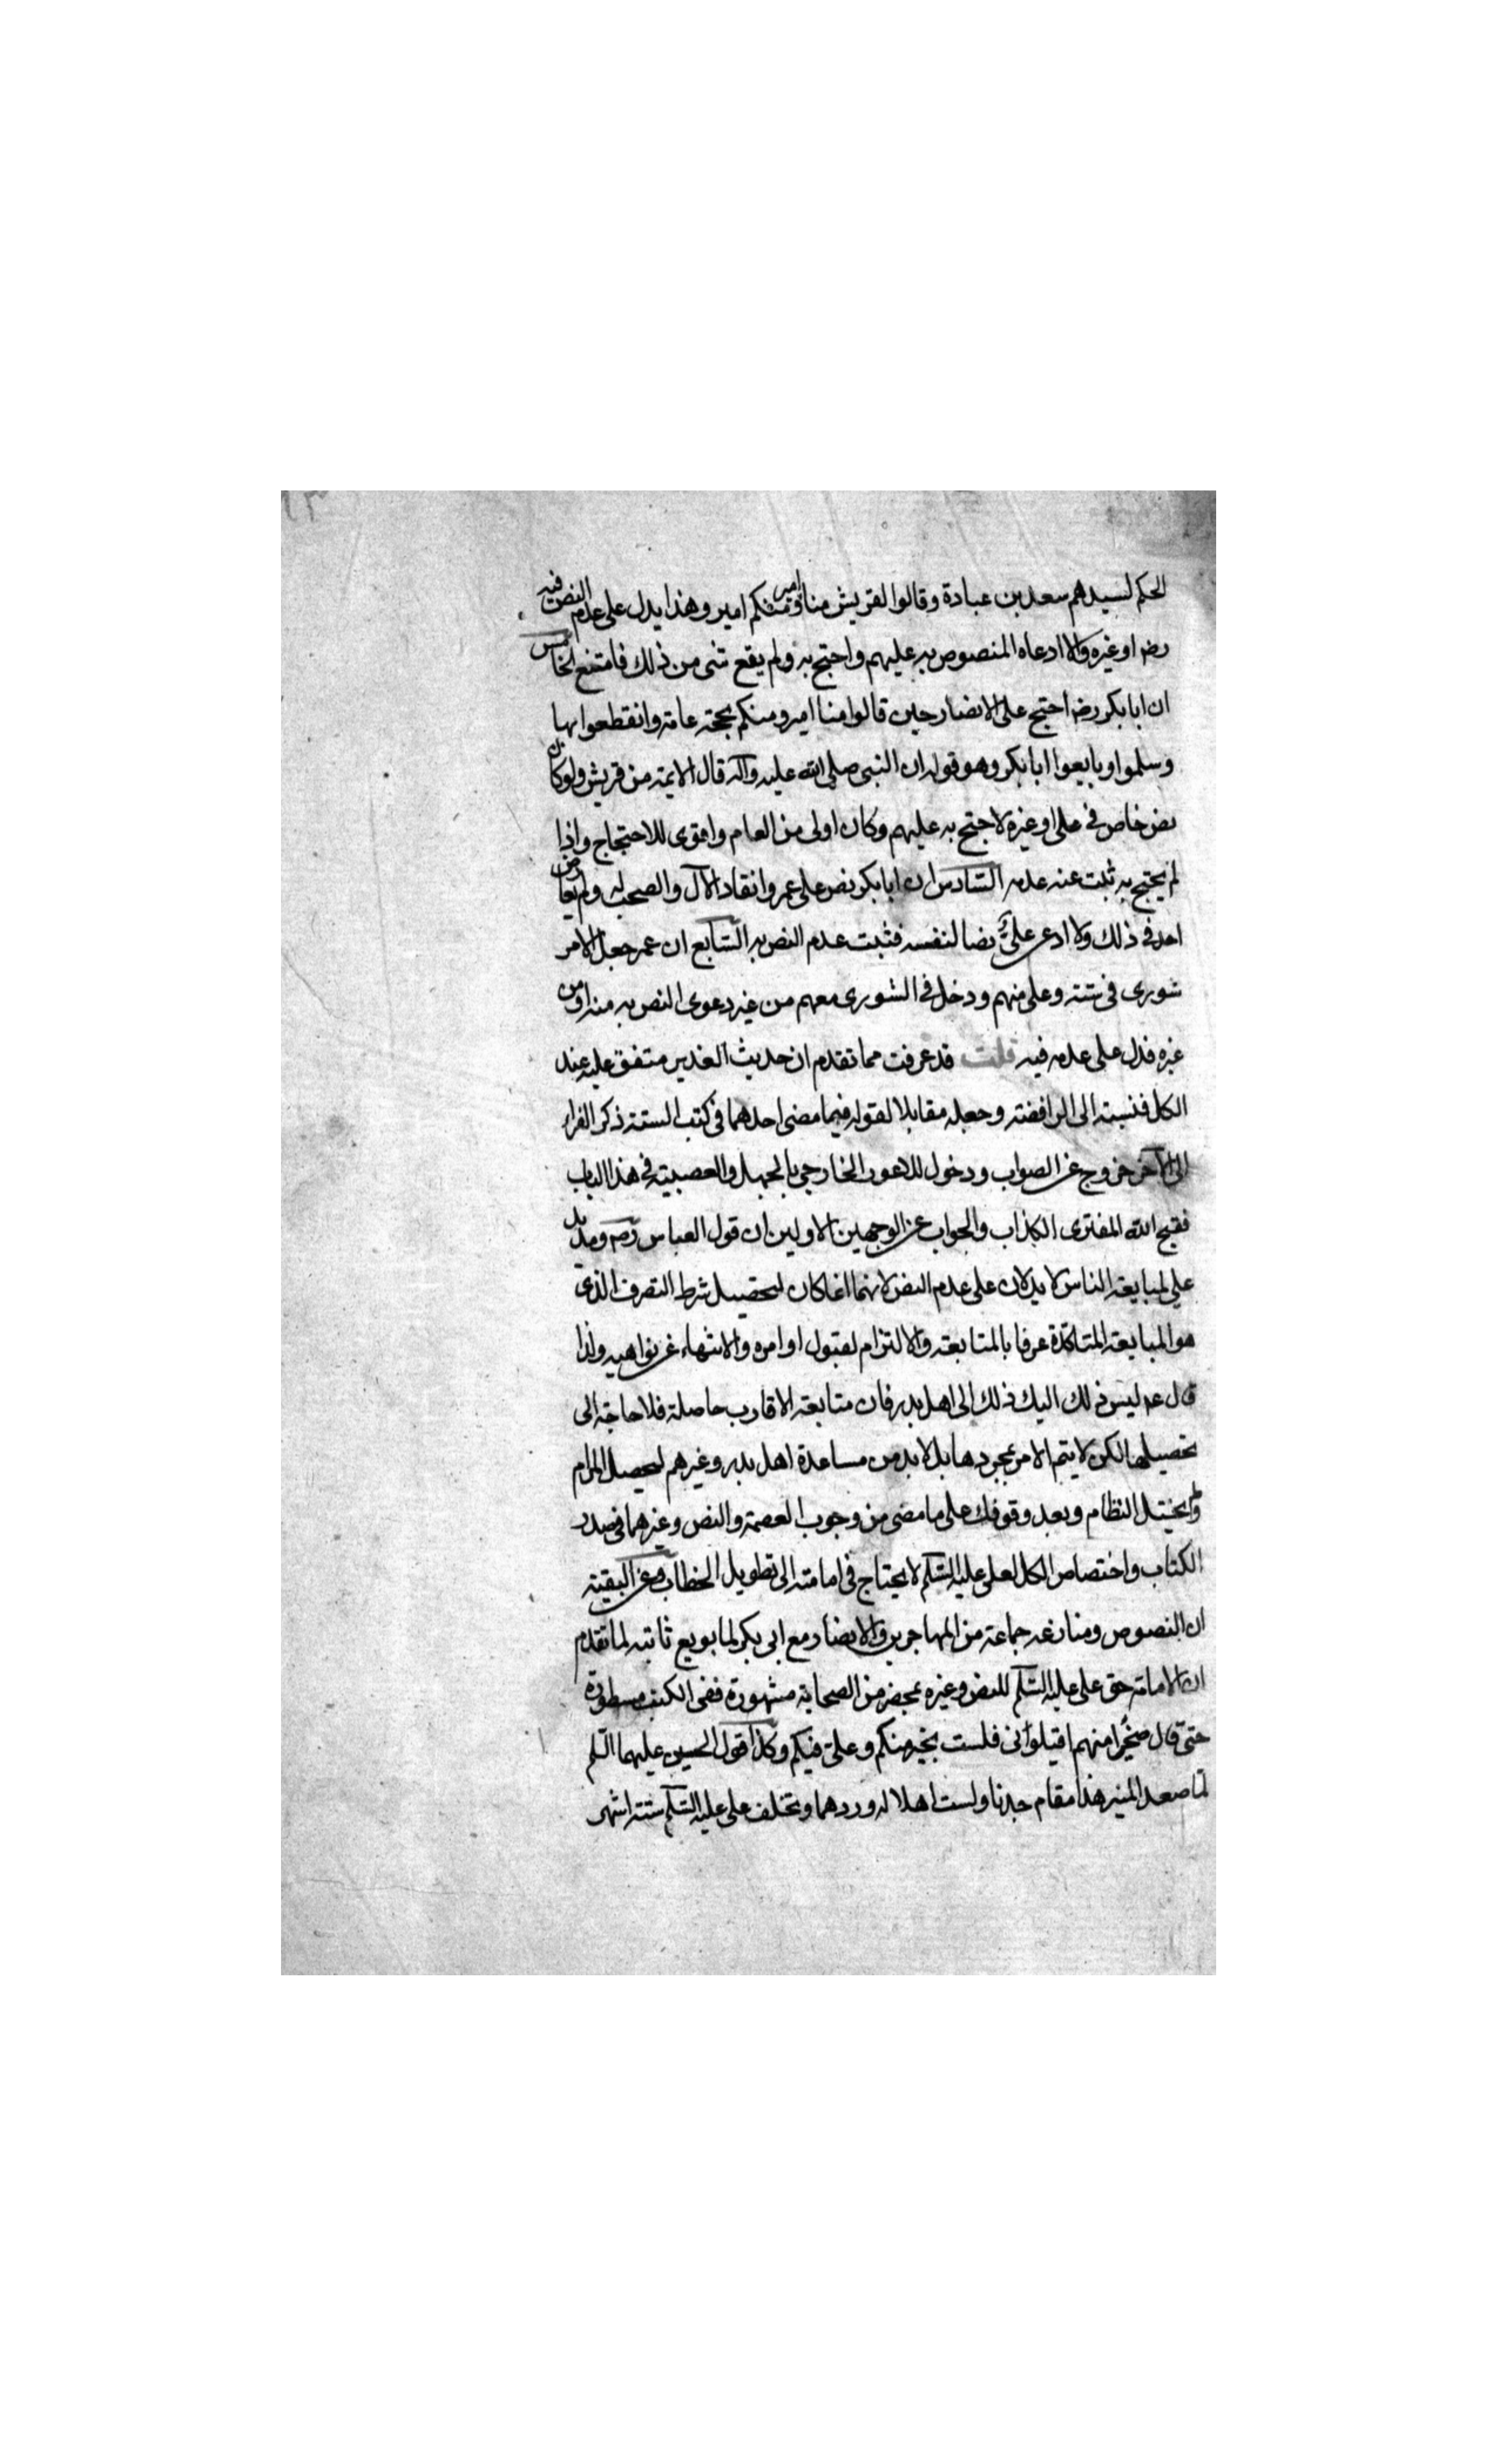 الحكم لسيدهم سعد بن عبادة وقالوا لقريش منا امير ومنكم امير وهذا يدل على عدم النص فيه
رضه او غيره والا ادعاه المنصوص به عليهم واحتج به ولم يقع شئ من ذلك فامتنع الخامس
ان ابا بكر رضه احتج على الانصار حين قالوا منا امير ومنكم بحجة عامة وانقطعوا بها
وسلموا وبايعوا ابا بكر وهو قوله ان النبى صلى الله عليه وآله قال الايمة من قريش ولو كان
نص خاص فى على او غيره لاحتج به عليهم وكان اولى من العام واقوى للاحتجاج واذا
لم يحتج به ثبت عنه عدمه السّادس ان ابا بكر نص على عمر وانقاد الآل والصحب له ولم يعارض
احد فى ذلك ولا ادعى علىّ نصا لنفسه فثبت عدم النص به السّابع ان عمر جعل الامر
شورى فى ستة وعلى منهم ودخل فى الشورى معهم من غير دعوى النص به منه او من
غيره فدل على عدمه فيه قلت قد عرفت مما تقدم ان حديث الغدير متفق عليه عند
الكل فنسبته الى الرافضة وجعله مقابلا لقوله فيما مضى احدهما فى كتب الستة ذكر الفراء
الى الآخر خروج عن الصواب ودخول للاعور الخارجي بالجهل والعصبية فى هذا الباب
فقبح الله المفترى الكذاب والجواب عن الوجهين الاولين ان قول العباس رضه ومد يد
علي لمبايعة الناس لا يدلان على عدم النص لانهما انما كان لتحصيل شرط التصرف الذي
هو المبايعة المتاكدة عرفا بالمتابعة والالتزام لقبول اوامره والانتهاء عن نواهيه ولذا
قال عم ليس ذلك اليك ذلك الى اهل بدر فان متابعة الاقارب حاصلة فلا حاجة الى
تحصيلها لكن لا يتم الامر بمجردها بل لا بد من مساعدة اهل بدر وغيرهم ليحصل المرام
ولم يختل النظام وبعد وقوفك على ما مضى من وجوب العصمة والنص وغيرهما فى صدر
الكتاب واختصاص الكل لعلى عليه السّلم لا يحتاج فى امامته الى تطويل الخطاب وعن البقية
ان النصوص ومنازعة جماعة من المهاجرين والانصار مع ابى بكر لما بويع ثابتة لما تقدم
ان الامامة حق على عليه السّلم للنص وغيره بمحضر من الصحابة مشهورة ففى الكتب مسطورة
حتى قال ضجرا منهم اقيلوانى فلست بخيرمنكم وعلىّ فيكم وكذا قول الحسين عليهما السّلم
لمّا صعد المنبر هذا مقام جدنا ولست اهلا له وردهما وتخلف على عليه السّلم ستة اشهر